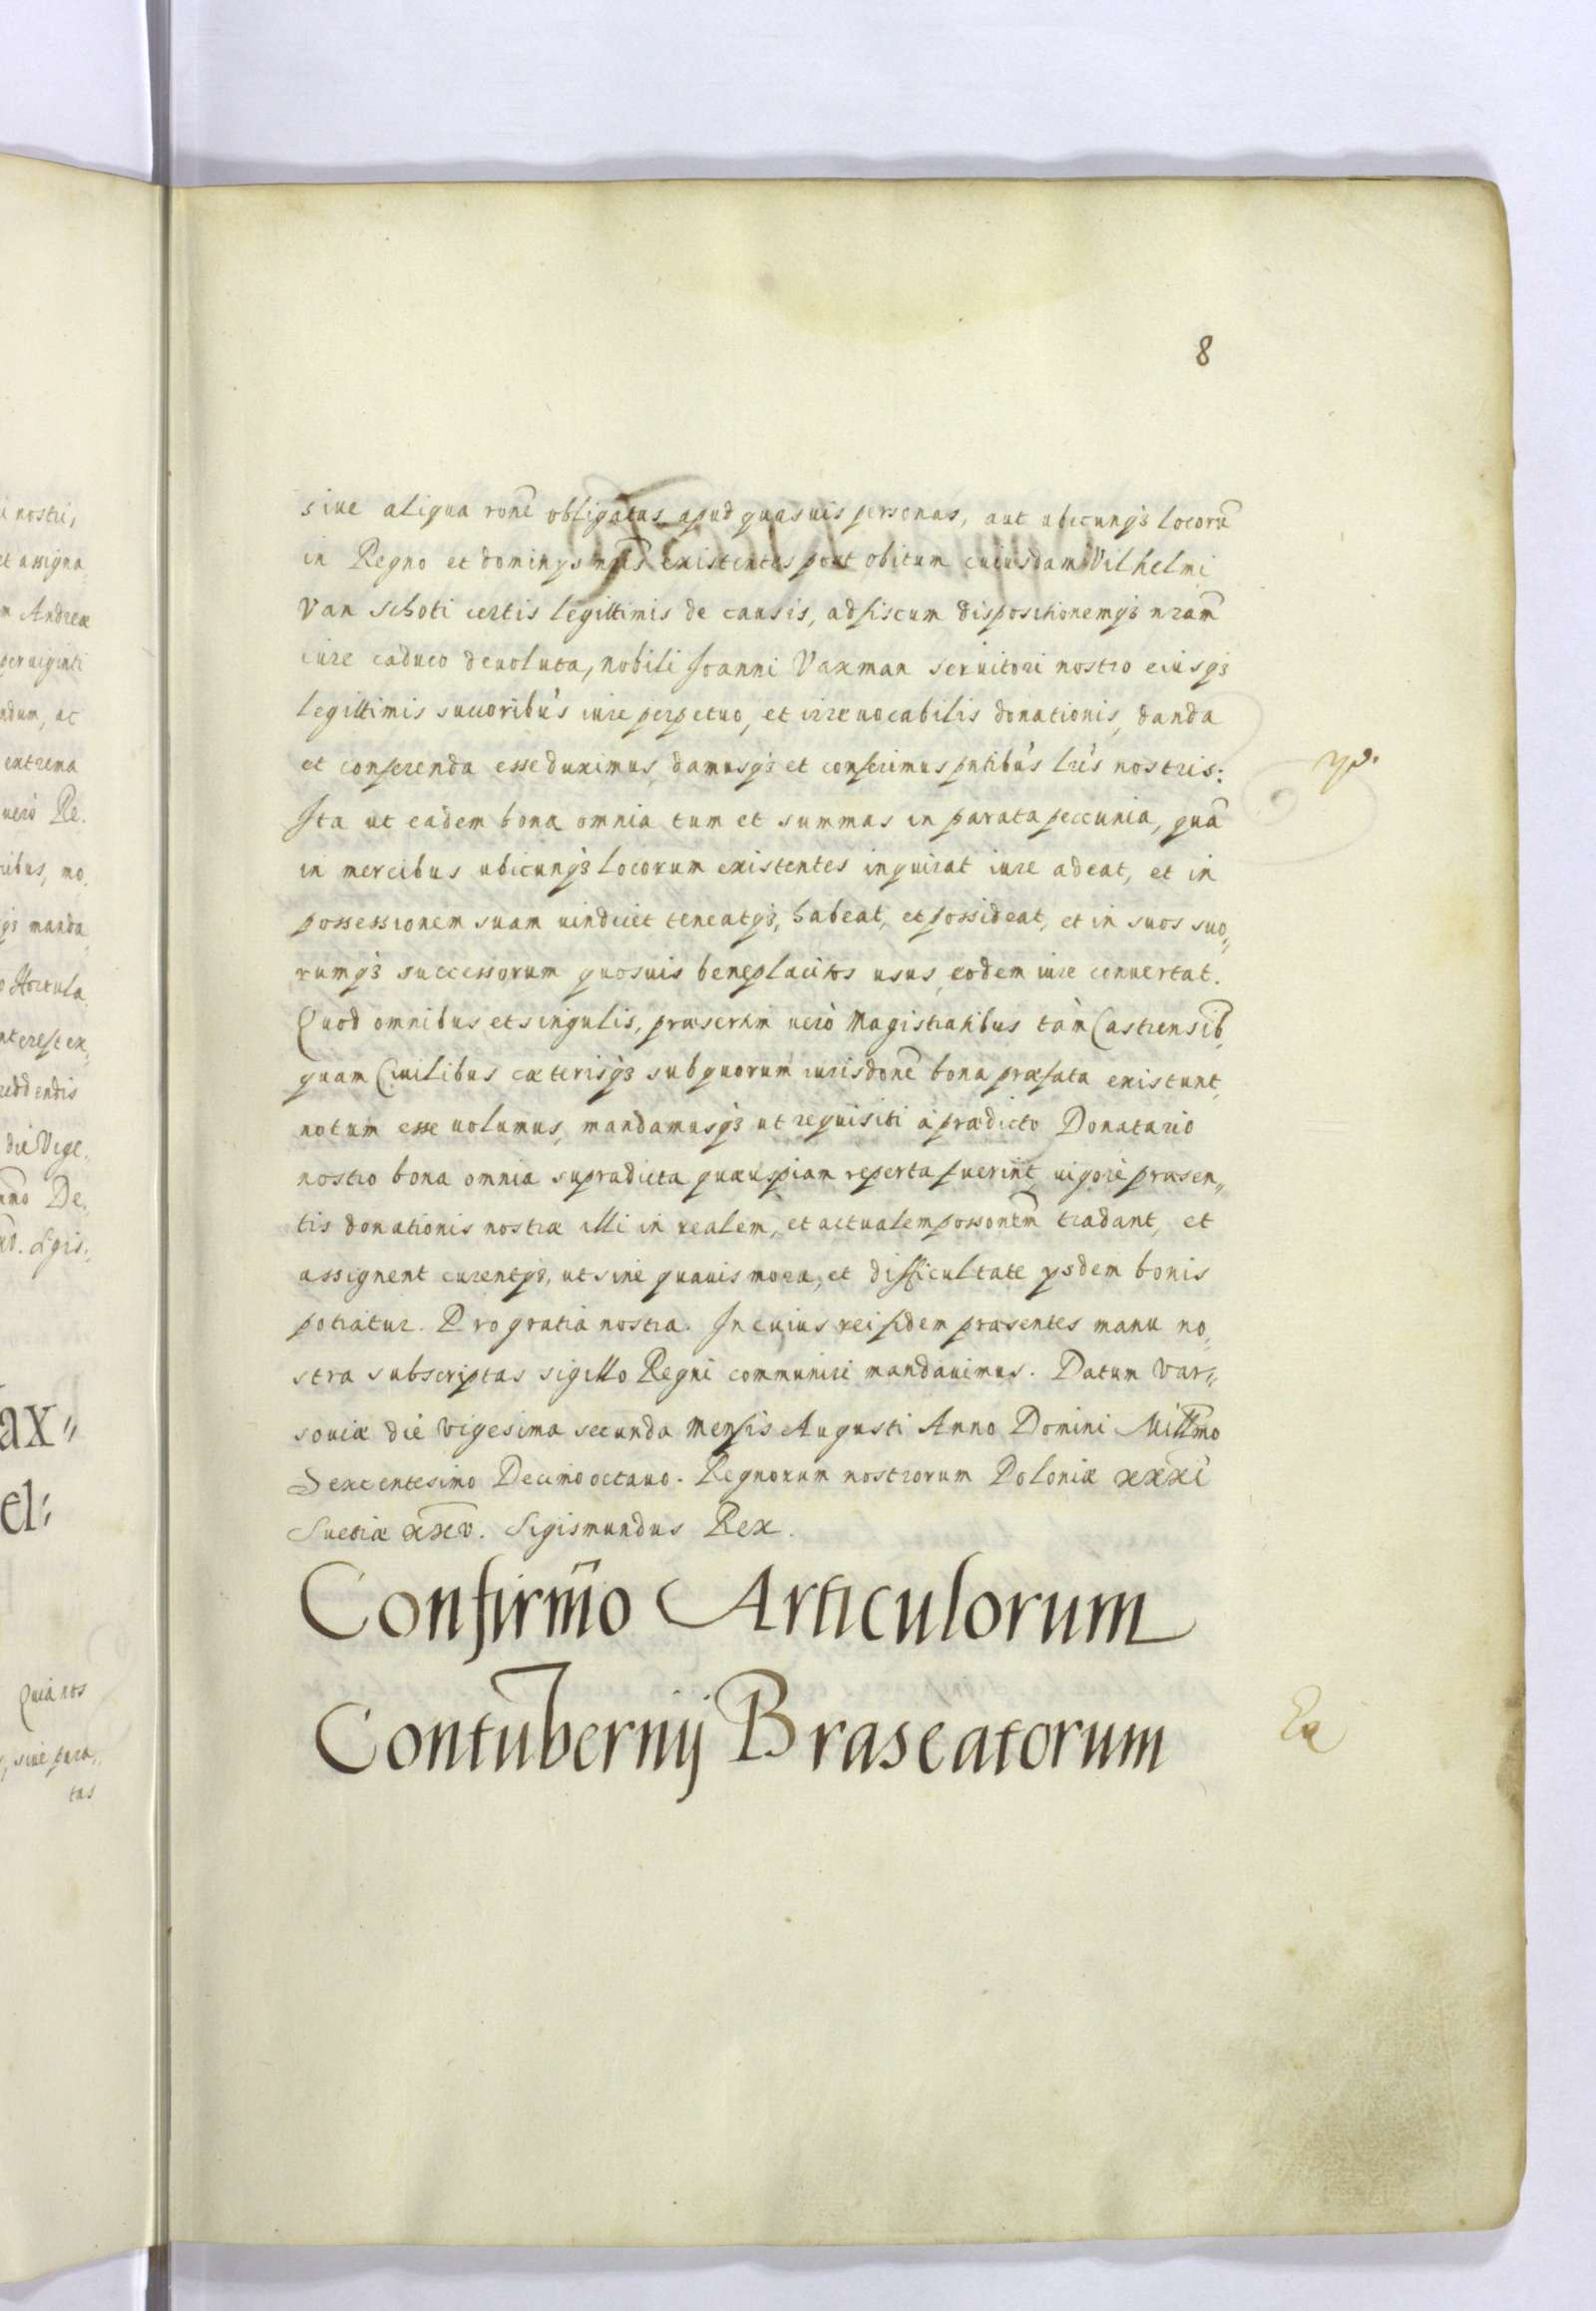 8
siue aliqua rone obligatas apud quasuis personas, aut ubicunqꝫ locorũ
in Regno et dominys nr̃is existentes post obitum cuiusdam Vilhelmi
Van Schoti certis legittimis de causis, ad fiscum dispositionemqꝫ nr̃am
iure caduco deuoluta, nobili Joanni Vaxman seruitori nostro eiusqꝫ
legittimis succoribus iure perpetuo, et irreuocabilis donationis, danda
et conferenda esse duximus, damusqꝫ et conferimus pn̄tibus lris nostris:
Ita ut eadem bona omnia tum et summas in parata peccunia, quã
in mercibus ubicunqꝫ locorum existentes inquirat iure adeat, et in
possessionem suam uindicet teneatqꝫ, habeat, et possideat, et in suos suo„
rumqꝫ successorum quosuis beneplacitos usus, eodem iure conuertat.
Quod omnibus et singulis, præsertim uerò Magistratibus tàm Castrensib,
quam Ciuilibus cæterisqꝫ sub quorum iurisdone bona præfata existunt,
notum esse uolumus, mandamusqꝫ ut requisiti à prædicto Donatario
nostro bona omnia supradicta quæuspiam reperta fuerint, uigore præsen„
tis donationis nostræ illi in realem, et actualem possonem tradant, et
assignent curentqꝫ, ut sine quauis mora, et difficultate ysdem bonis
potiatur. Pro gratia nostra. In cuius rei fidem præsentes manu no„
stra subscriptas sigillo Regni communiri mandauimus. Datum Var„
souiæ die vigesima secunda Mensis Augusti Anno Domini Millmo
Sexcentesimo Decimo octauo. Regnorum nostrorum Poloniæ xxxi
Suetiæ xxv. Sigismundus Rex.
Confirm̃o Articulorum
Contubernij Braseatorum